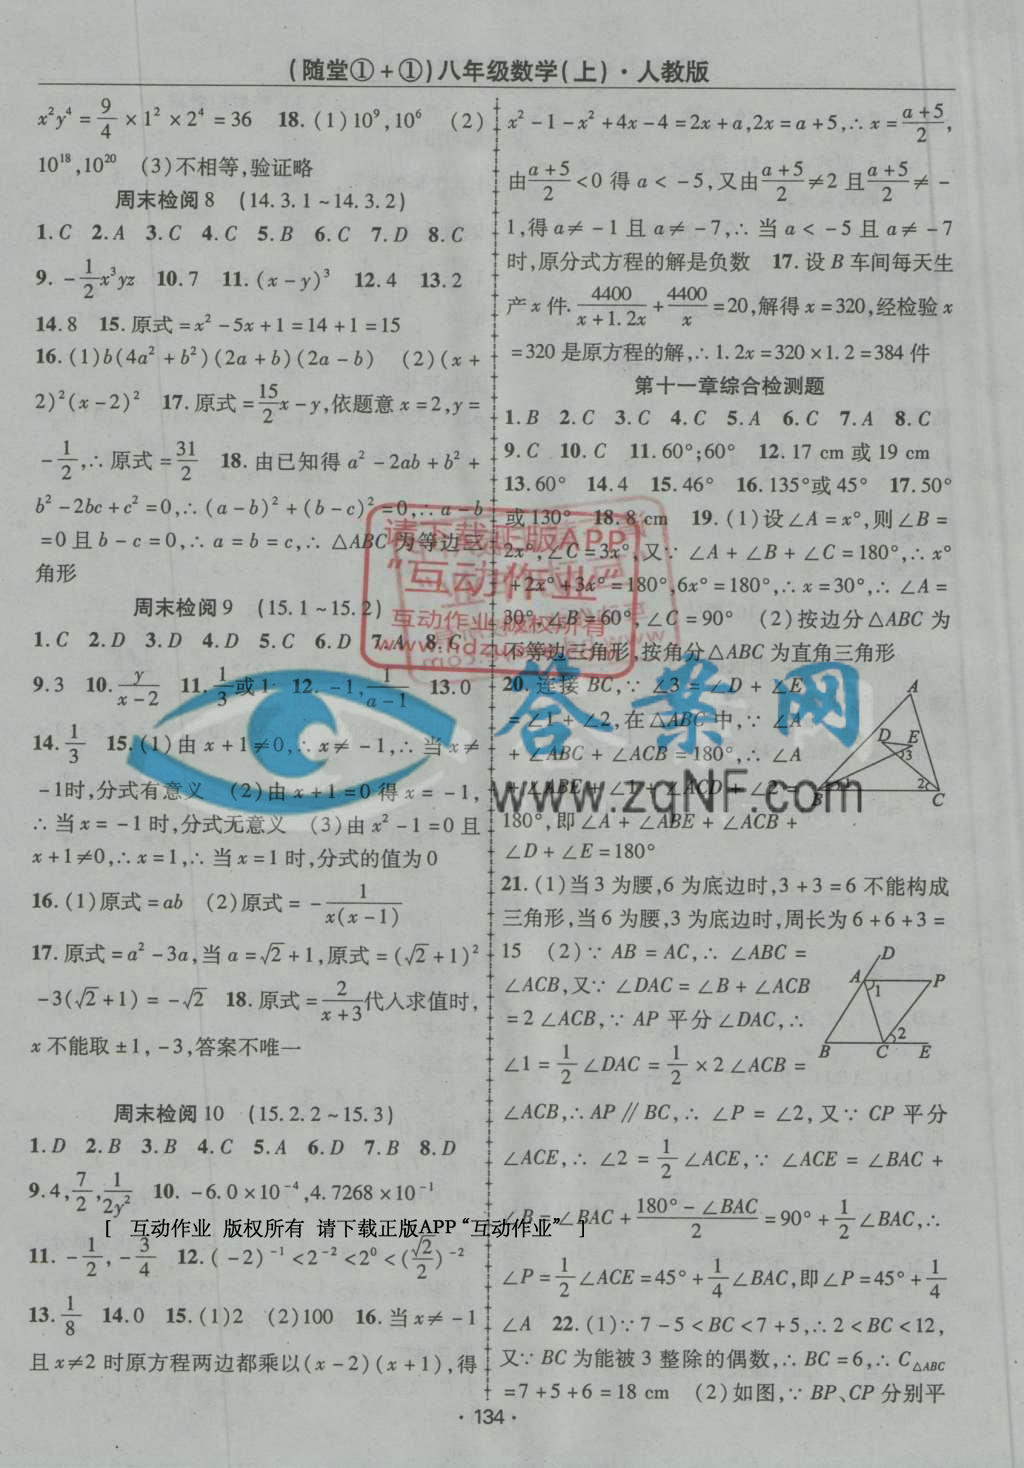 (随堂①+①)八年级数学(上)·人教版
x²y⁴=9/4×1²×2⁴=36 18.(1)10⁹,10⁶ (2)
10¹⁸,10²⁰ (3)不相等,验证略
周末检阅8 (14.3.1~14.3.2)
1.C 2.A 3.C 4.C 5.B 6.C 7.D 8.C
9.-1/2x³yz 10.7 11.(x-y)³ 12.4 13.2
14.8 15.原式=x²-5x+1=14+1=15
16.(1)b(4a²+b²)(2a+b)(2a-b) (2)(x+
2)²(x-2)² 17.原式=15/2x-y,依题意x=2,y=
-1/2,∴原式=31/2 18.由已知得a²-2ab+b²+
b²-2bc+c²=0,∴(a-b)²+(b-c)²=0,∴a-b
=0且b-c=0,∴a=b=c,∴△ABC为等边三
角形
周末检阅9 (15.1~15.2)
1.C 2.D 3.D 4.D 5.C 6.D 7.A 8.C
9.3 10.y/(x-2) 11.1/3或1 12.-1,1/(a-1) 13.0
14.1/3 15.(1)由x+1≠0,∴x≠-1,∴当x≠
-1时,分式有意义 (2)由x+1=0得x=-1,
∴当x=-1时,分式无意义 (3)由x²-1=0且
x+1≠0,∴x=1,∴当x=1时,分式的值为0
16.(1)原式=ab (2)原式=-1/(x(x-1))
17.原式=a²-3a,当a=√2+1,原式=(√2+1)²
-3(√2+1)=-√2 18.原式=2/(x+3)代人求值时,
x不能取±1,-3,答案不唯一
周末检阅10 (15.2.2~15.3)
1.D 2.B 3.B 4.C 5.A 6.D 7.B 8.D
9.4,7/2,1/(2y²) 10.-6.0×10⁻⁴,4.7268×10⁻¹
[ 互动作业 版权所有 请下载正版APP“互动作业” ]
11.-1/2,-3/4 12.(-2)⁻¹<2⁻²<2⁰<(√2/2)⁻²
13.1/8 14.0 15.(1)2 (2)100 16.当x≠-1
且x≠2时原方程两边都乘以(x-2)(x+1),得
x²-1-x²+4x-4=2x+a,2x=a+5,∴x=(a+5)/2,
由(a+5)/2<0得a<-5,又由(a+5)/2≠2且(a+5)/2≠-
1,得a≠-1且a≠-7,∴当a<-5且a≠-7
时,原分式方程的解是负数 17.设B车间每天生
产x件.4400/(x+1.2x)+4400/x=20,解得x=320,经检验x
=320是原方程的解,∴1.2x=320×1.2=384件
第十一章综合检测题
1.B 2.C 3.C 4.C 5.A 6.C 7.A 8.C
9.C 10.C 11.60°;60° 12.17 cm或19 cm
13.60° 14.4 15.46° 16.135°或45° 17.50°
或130° 18.8 cm 19.(1)设∠A=x°,则∠B=
2x°,∠C=3x°,又∵∠A+∠B+∠C=180°,∴x°
+2x°+3x°=180°,6x°=180°,∴x=30°,∴∠A=
30°,∠B=60°,∠C=90° (2)按边分△ABC为
不等边三角形,按角分△ABC为直角三角形
20.连接BC,∵∠3=∠D+∠E
=∠1+∠2,在△ABC中,∵∠A
+∠ABC+∠ACB=180°,∴∠A
+∠ABE+∠1+∠ACD+∠2=
180°,即∠A+∠ABE+∠ACB+
∠D+∠E=180°
A
D E
3
B 2 C
21.(1)当3为腰,6为底边时,3+3=6不能构成
三角形,当6为腰,3为底边时,周长为6+6+3=
15 (2)∵AB=AC,∴∠ABC=
∠ACB,又∵∠DAC=∠B+∠ACB
=2∠ACB,∵AP平分∠DAC,∴
∠1=1/2∠DAC=1/2×2∠ACB=
D
A 1 P
2
B C E
∠ACB,∴AP∥BC,∴∠P=∠2,又∵CP平分
∠ACE,∴∠2=1/2∠ACE,∵∠ACE=∠BAC+
∠B=∠BAC+(180°-∠BAC)/2=90°+1/2∠BAC,∴
∠P=1/2∠ACE=45°+1/4∠BAC,即∠P=45°+1/4
∠A 22.(1)∵7-5<BC<7+5,∴2<BC<12,
又∵BC为能被3整除的偶数,∴BC=6,∴C△ABC
=7+5+6=18 cm (2)如图,∵BP、CP分别平
·134·
请下载正版APP
“互动作业”
互动作业 版权所有
答案网
www.zqNF.com